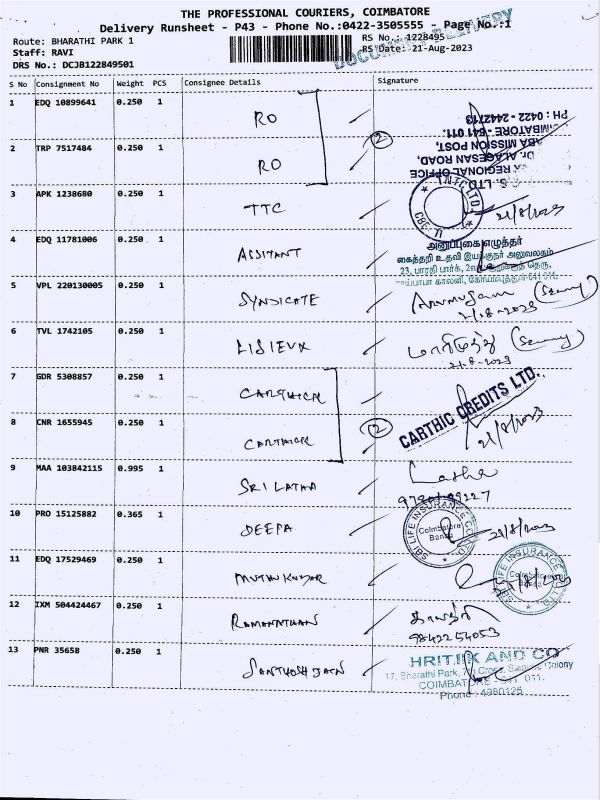 THE PROFESSIONAL COURIERS, COIMBATORE
Delivery Runsheet - P43 - Phone No.:0422-3505555 - Page No.:1
Route: BHARATHI PARK 1
RS No.: 1228495
Staff: RAVI
RS Date: 21-Aug-2023
DRS No.: DCJB122849501
S No Consignment No Weight PCS Consignee Details Signature
1 EDQ 10899641 0.250 1 RO
PH : 0422 - 2442713
2 TRP 7517484 0.250 1 RO 2
Dr. ALAGESAN ROAD,
3 APK 1238680 0.250 1 TTC 21/8/2023
4 EDQ 11781006 0.250 1 ASSITANT
அனுப்புகை எழுத்தர்
கைத்தறி உதவி இயக்குநர் அலுவலகம்
5 VPL 220130005 0.250 1 SYNDICATE Arumugam
21-8-2023
6 TVL 1742105 0.250 1 LISIEUX மாரிமுத்து
21-8-2023
7 GDR 5308857 0.250 1 CARTHICK
CARTHIC CREDITS LTD.
8 CNR 1655945 0.250 1 CARTHICK 2 21/8/2023
9 MAA 103842115 0.995 1 SRI LATHA Latha
10 PRO 15125882 0.365 1 DEEPA 21/8/2023
SBI LIFE INSURANCE CO. LTD.
11 EDQ 17529469 0.250 1 21/8/2023
12 IXM 504424467 0.250 1
9842254053
13 PNR 35658 0.250 1 SANTHOSH JAIN
HRITIK AND CO
17, Bharathi Park, 7th Cross, Saibaba Colony
COIMBATORE - 641 011.
Phone : 4980125